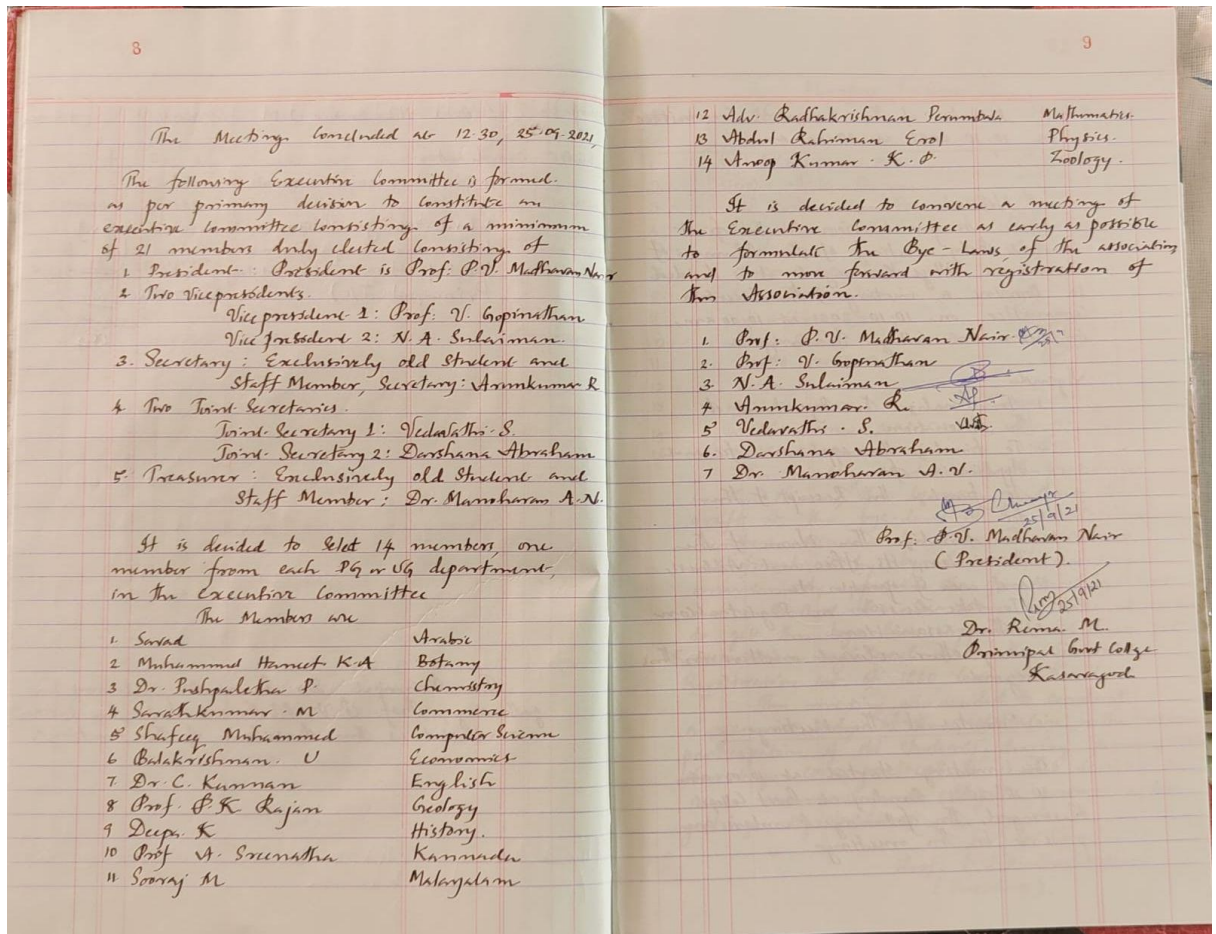 8
The Meeting Concluded at 12.30, 25-09-2021,
The following Executive Committee is formed
as per primary decision to constitute an
executive committee consisting of a minimum
of 21 members duly elected consisting of
1. President : President is Prof: P.V. Madhavan Nair
2 Two Vicepresidents.
Vice president 1: Prof: V. Gopinathan
Vice president 2: N.A. Sulaiman.
3. Secretary : Exclusively old Student and
Staff Member, Secretary: Arunkumar R
4 Two Joint Secretaries.
Joint Secretary 1: Vedavathi S.
Joint Secretary 2: Darshana Abraham
5. Treasurer : Exclusively old Student and
Staff Member : Dr. Manoharan A.N.
It is decided to Select 14 members, one
member from each PG or UG department,
in the executive Committee
The Members are
1. Savad Arabic
2 Muhammed Haneef K.A Botany
3 Dr. Pushpaletha P. Chemistry
4 Sarathkumar M Commerce
5 Shafeeq Muhammed Computer Science
6 Balakrishnan. U Economics
7 Dr. C. Kannan English
8 Prof. P.K Rajan Geology
9 Deepa K History.
10 Prof A. Sreenatha Kannada
11 Sooraj M Malayalam
9
12 Adv. Radhakrishnan Perumbala Mathematics.
13 Abdul Rahiman Erol Physics.
14 Anoop Kumar. K.P. Zoology.
It is decided to convene a meeting of
the Executive Committee as early as possible
to formulate the Bye-Laws of the association
and to move forward with registration of
the Association.
1. Prof: P.V. Madhavan Nair
2. Prof: V. Gopinathan
3. N.A. Sulaiman
4 Arunkumar. R.
5 Vedavathi. S.
6. Darshana Abraham
7 Dr. Manoharan A.V.
25/9/21
Prof. P.V. Madhavan Nair
(President).
25/9/21
Dr. Rema M.
Principal Govt College
Kasaragod